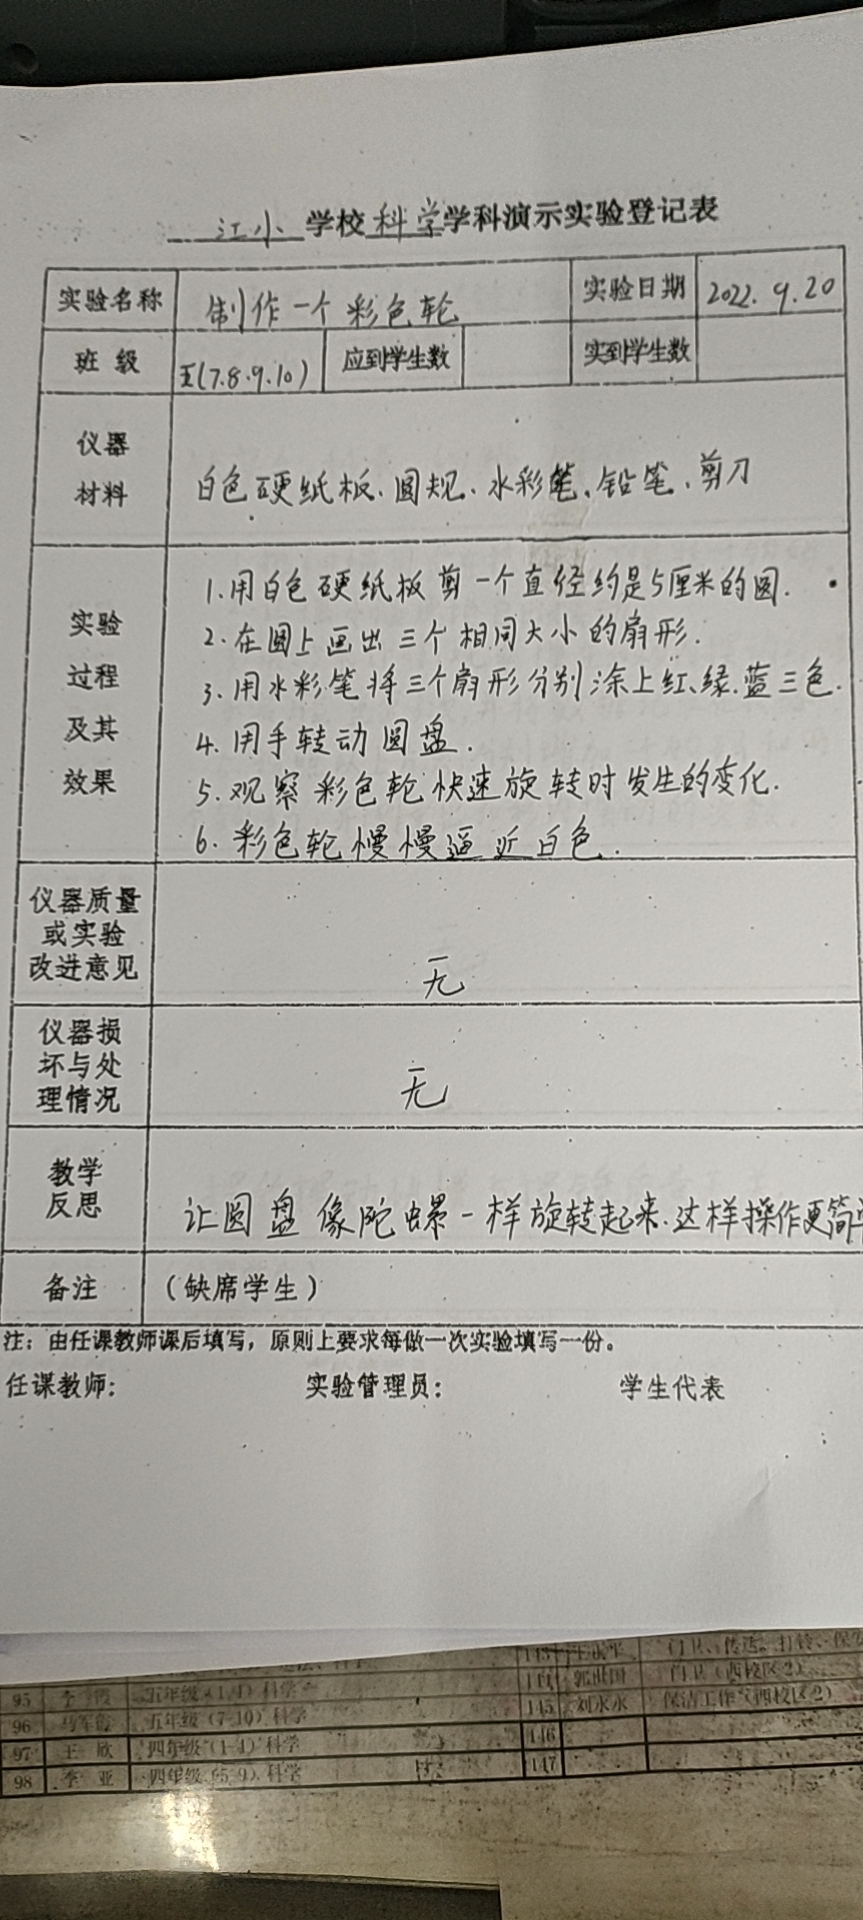 江小 学校 科学 学科演示实验登记表
实验名称 制作一个彩色轮 实验日期 2022.9.20
班 级 五(7.8.9.10) 应到学生数 实到学生数
仪器
材料
白色硬纸板、圆规、水彩笔、铅笔、剪刀
实验
过程
及其
效果
1.用白色硬纸板剪一个直径约是5厘米的圆.
2.在圆上画出三个相同大小的扇形.
3.用水彩笔将三个扇形分别涂上红、绿.蓝三色.
4.用手转动圆盘.
5.观察彩色轮快速旋转时发生的变化.
6.彩色轮慢慢逼近白色.
仪器质量
或实验
改进意见
无
仪器损
坏与处
理情况
无
教学
反思
让圆盘像陀螺一样旋转起来.这样操作更简单
备注 (缺席学生)
注：由任课教师课后填写，原则上要求每做一次实验填写一份。
任课教师： 实验管理员： 学生代表
143 门卫、传达、打铃、保安
95 李 霞 五年级（1-4）科学 144 郭世国 门卫（西校区2）
96 五年级（7-10）科学 145 刘永永 保洁工作（西校区2）
97 王 欣 四年级（1-4）科学 146
98 李 亚 四年级（5-9）科学 147